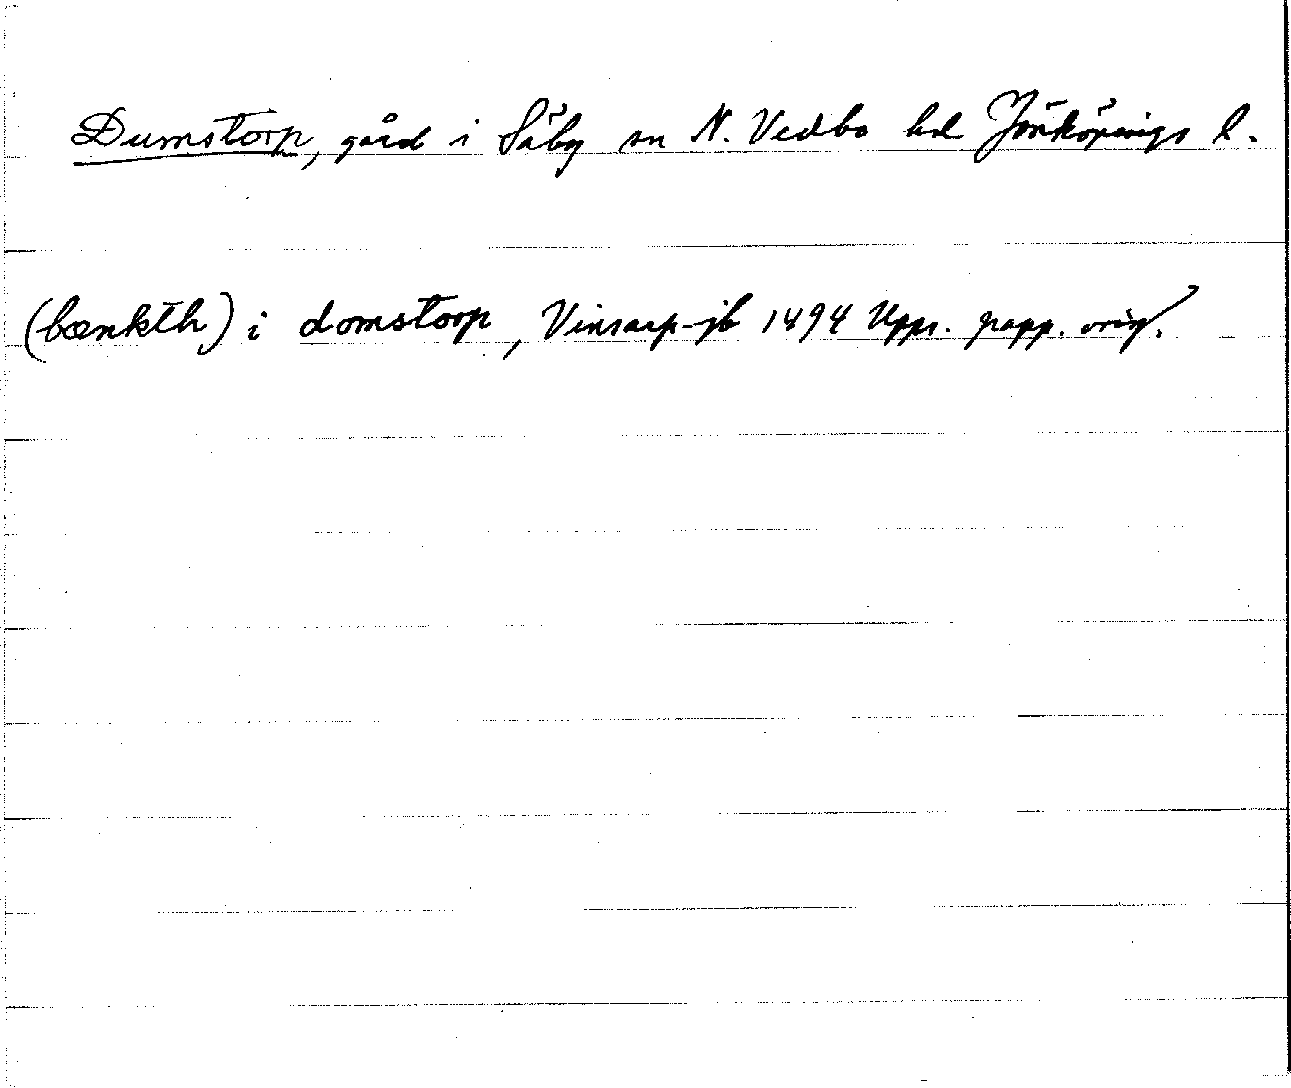 Dumstorp, gård i Säby sn N. Vedbo hd Jönköpings l.
(bænkth) i domstorp, Vinsarp-jb 1494 Upps. papp. orig.